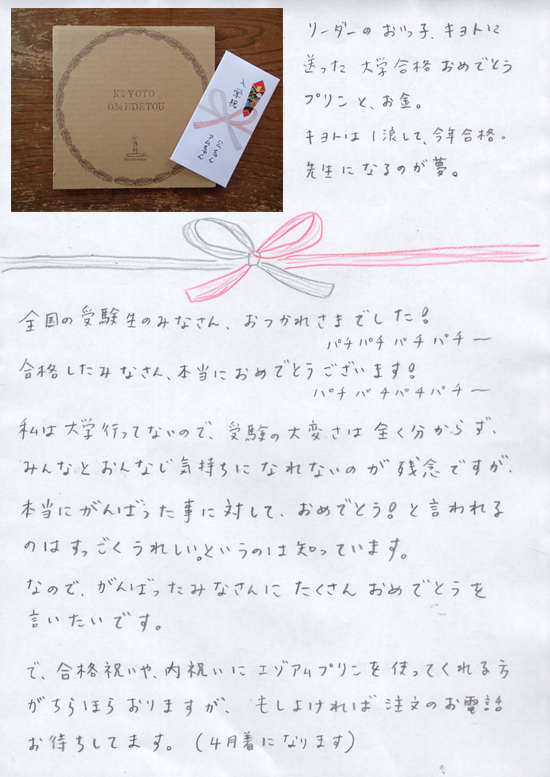 KIYOTO
OMEDETOU
入学祝
リーダーのおいっ子、キヨトに
送った 大学合格 おめでとう
プリンと、お金。
キヨトは1浪して、今年合格。
先生になるのが夢。
全国の受験生のみなさん、おつかれさまでした!
パチパチパチパチー
合格したみなさん、本当におめでとうございます!
パチパチパチパチー
私は大学行ってないので、受験の大変さは全く分からず、
みんなとおんなじ気持ちになれないのが残念ですが、
本当にがんばった事に対して、おめでとう!と言われる
のはすっごくうれしい。というのは知っています。
なので、がんばったみなさんにたくさんおめでとうを
言いたいです。
で、合格祝いや、内祝いにエゾアムプリンを使ってくれる方
がちらほらおりますが、もしよければ注文のお電話
お待ちしてます。(4月着になります)